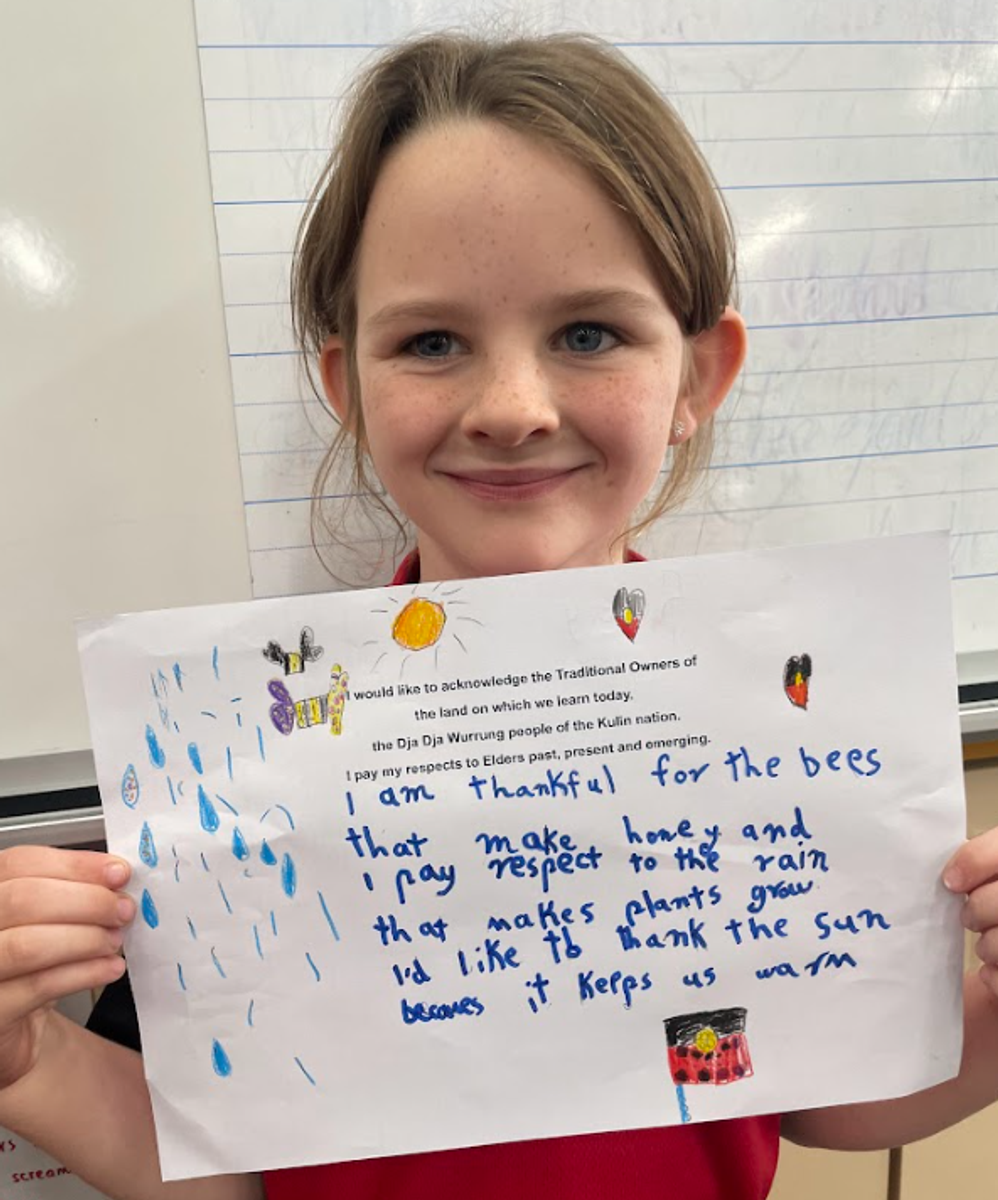 I would like to acknowledge the Traditional Owners of
the land on which we learn today,
the Dja Dja Wurrung people of the Kulin nation.
I pay my respects to Elders past, present and emerging.
I am thankful for the bees
that make honey and
I pay respect to the rain
that makes plants grow
I'd like to thank the sun
becaues it keeps us warm
scream